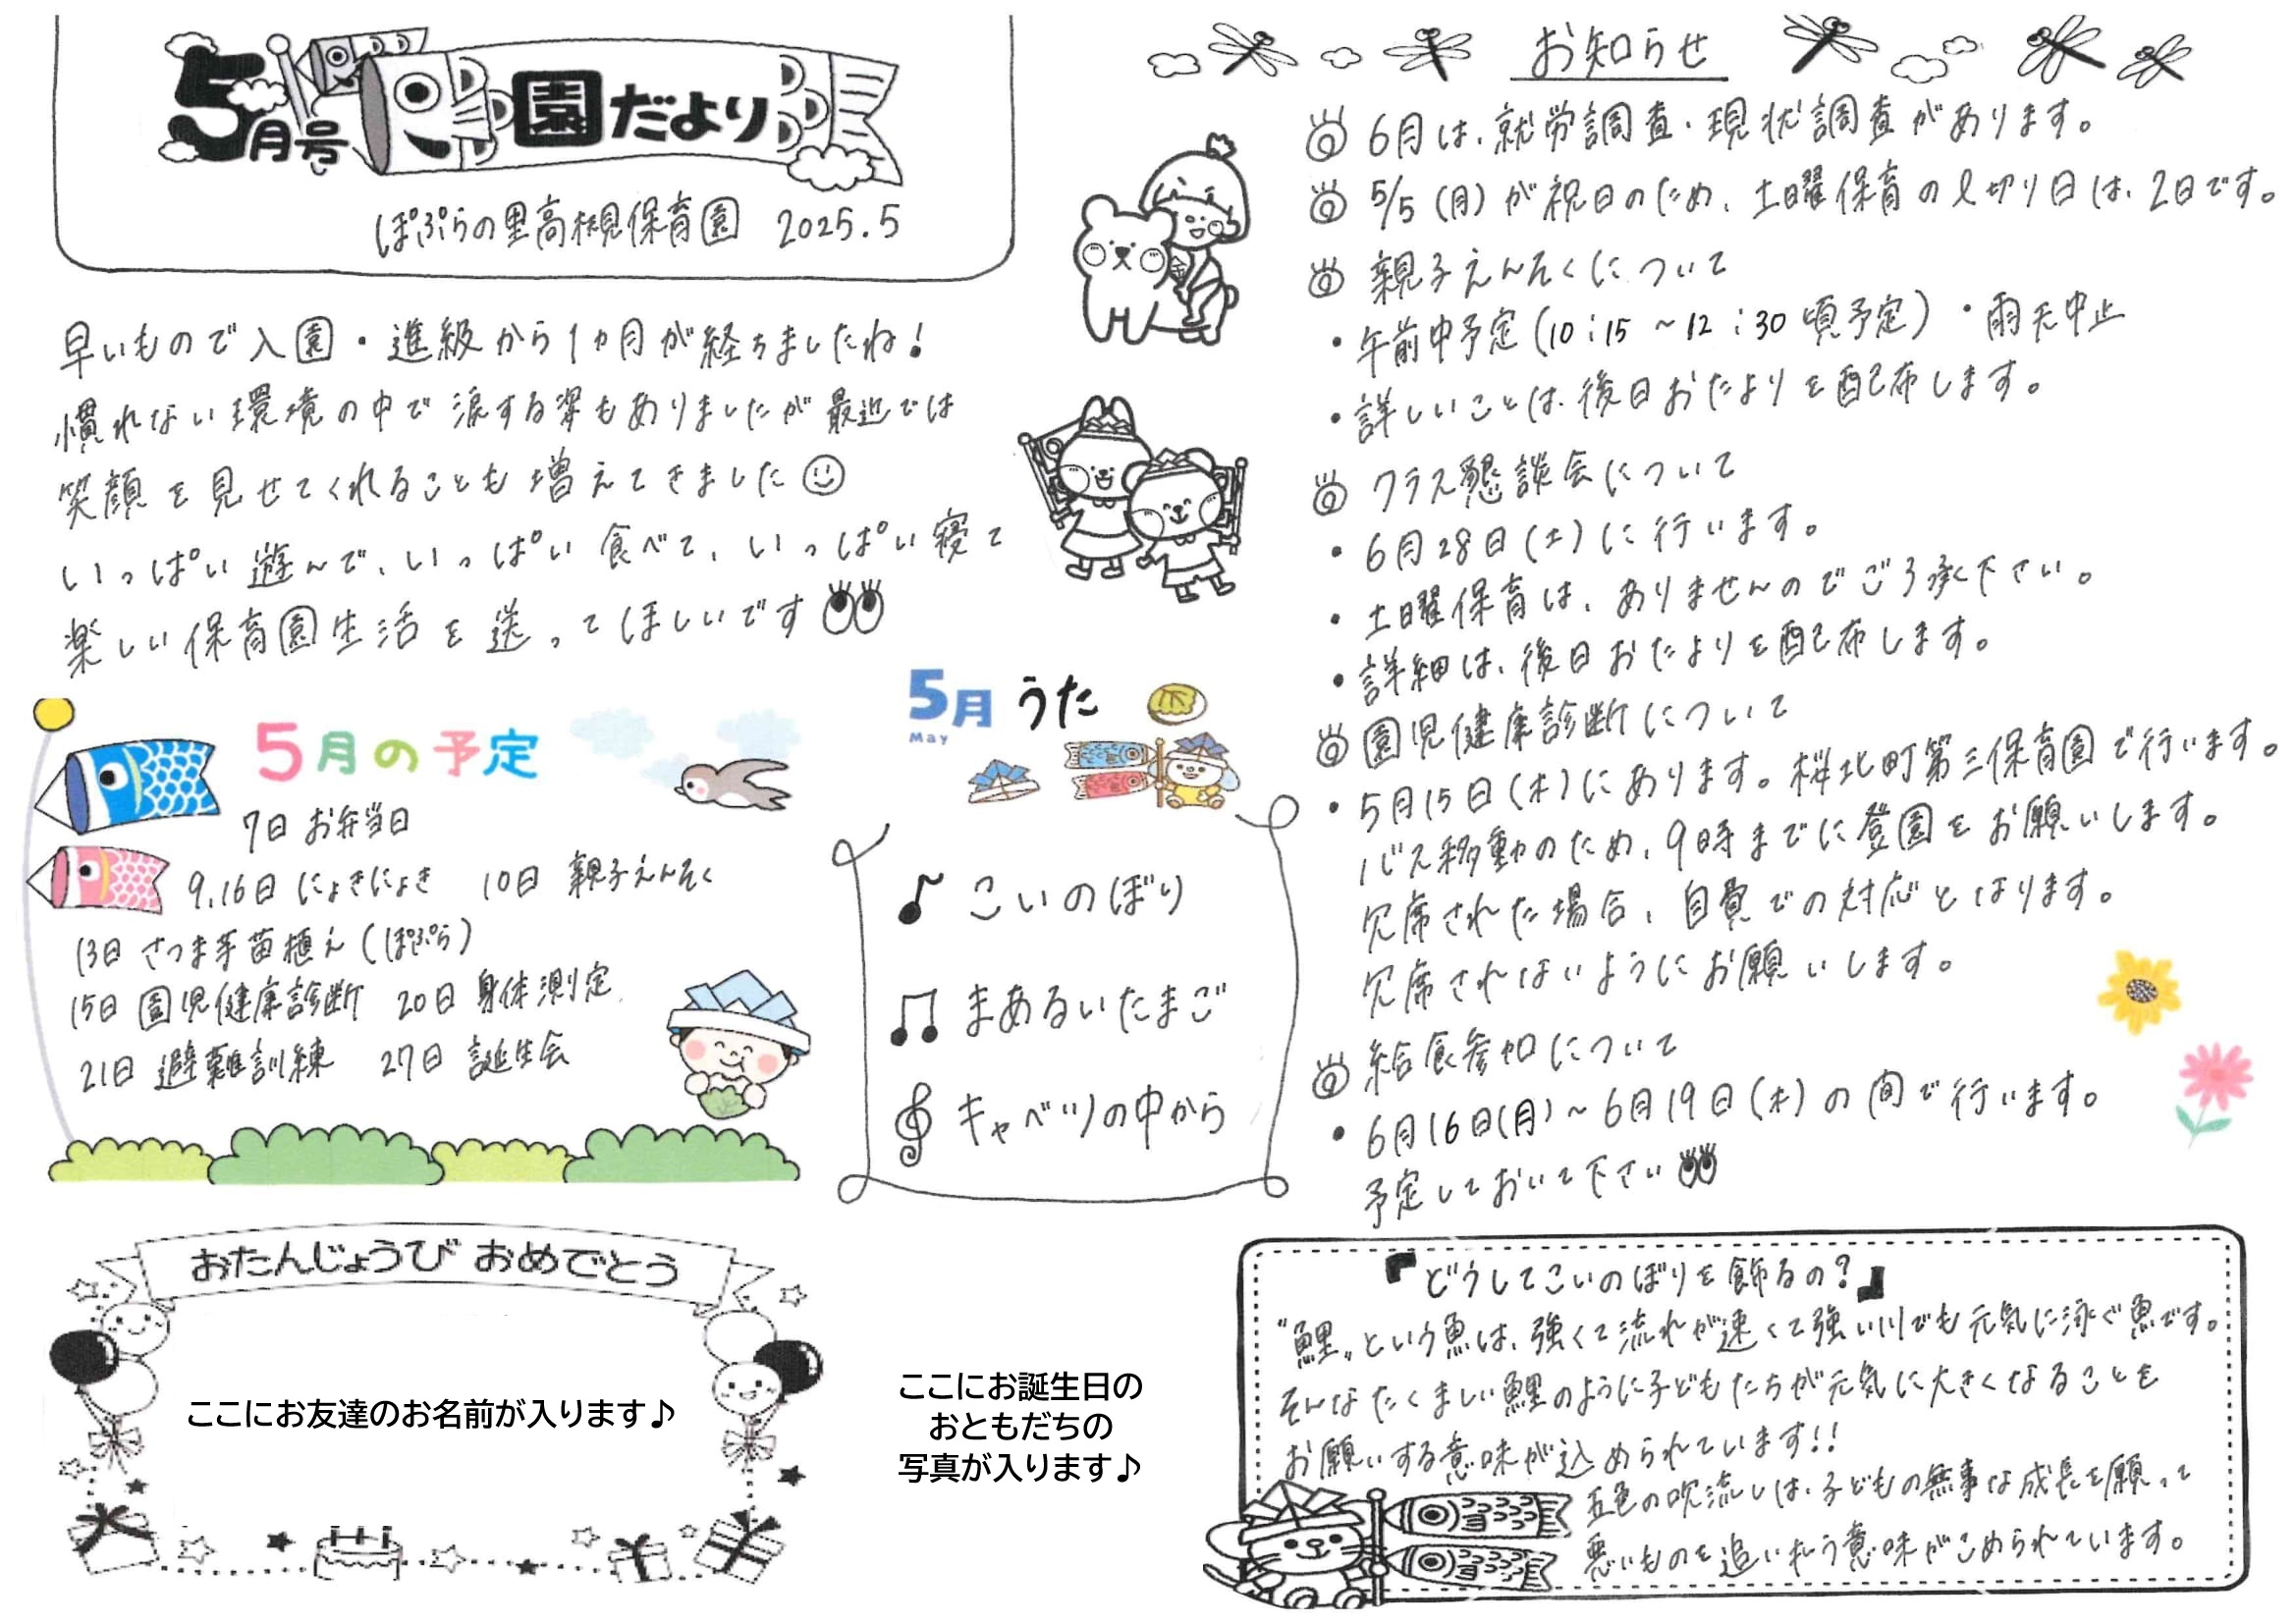 5月号 園だより
ぽぷらの里高槻保育園 2025.5
早いもので入園・進級から1ヵ月が経ちましたね!
慣れない環境の中で涙する姿もありましたが最近では
笑顔を見せてくれることも増えてきました
いっぱい遊んで、いっぱい食べて、いっぱい寝て
楽しい保育園生活を送ってほしいです
5月の予定
7日 お弁当日
9,16日 にょきにょき 10日 親子えんそく
13日 さつま芋苗植え(ぽぷら)
15日 園児健康診断 20日 身体測定
21日 避難訓練 27日 誕生会
5月 うた
May
こいのぼり
まあるいたまご
キャベツの中から
おたんじょうび おめでとう
ここにお友達のお名前が入ります♪
ここにお誕生日の
おともだちの
写真が入ります♪
お知らせ
6月は、就労調査・現状調査があります。
5/5(月)が祝日のため、土曜保育の〆切り日は、2日です。
親子えんそくについて
・午前中予定(10:15~12:30頃予定)・雨天中止
・詳しいことは、後日おたよりを配布します。
クラス懇談会について
・6月28日(土)に行います。
・土曜保育は、ありませんのでご了承下さい。
・詳細は、後日おたよりを配布します。
園児健康診断について
・5月15日(木)にあります。桜北町第三保育園で行います。
バス移動のため、9時までに登園をお願いします。
欠席された場合、自費での対応となります。
欠席されないようにお願いします。
給食参加について
・6月16日(月)~6月19日(木)の間で行います。
予定しておいて下さい
『どうしてこいのぼりを飾るの?』
"鯉"という魚は、強くて流れが速くて強い川でも元気に泳ぐ魚です。
そんなたくましい鯉のように子どもたちが元気に大きくなることを
お願いする意味が込められています!!
五色の吹流しは、子どもの無事な成長を願って
悪いものを追い払う意味がこめられています。
金